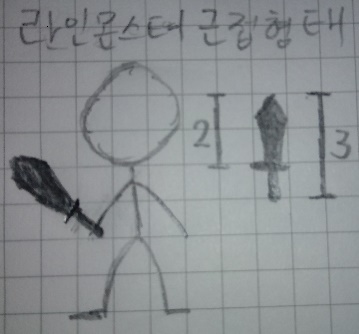 라인몬스터 근접형태
2
3